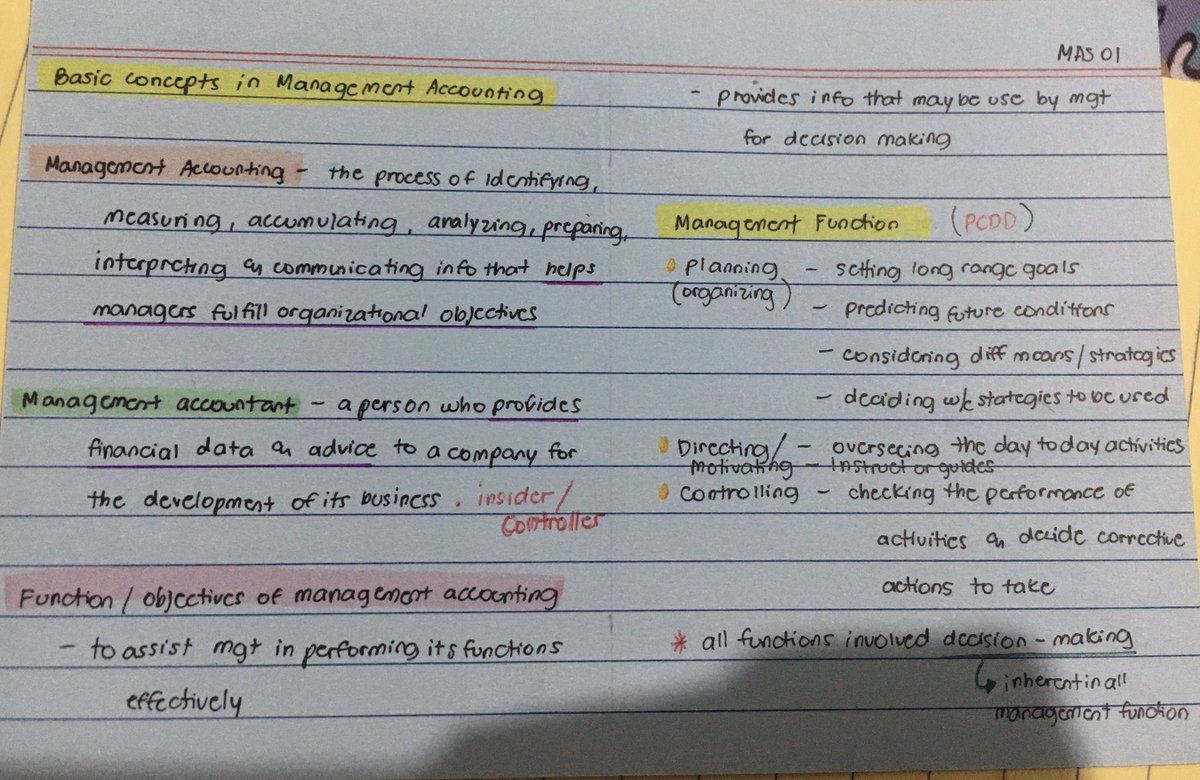 MAS 01
Basic concepts in Management Accounting
Management Accounting - the process of identifying,
measuring, accumulating, analyzing, preparing,
interpreting & communicating info that helps
managers fulfill organizational objectives
Management accountant - a person who provides
financial data & advice to a company for
the development of its business. insider/
controller
Function / objectives of management accounting
- to assist mgt in performing its functions
effectively
- provides info that may be use by mgt
for decision making
Management Function (PCDD)
Planning - setting long range goals
(organizing)
- predicting future conditions
- considering diff means/strategies
- deciding w/c stategies to be used
Directing/ - overseeing the day today activities
motivating - instruct or guides
controlling - checking the performance of
activities & decide corrective
actions to take
* all functions involved decision-making
↳ inherent in all
management function